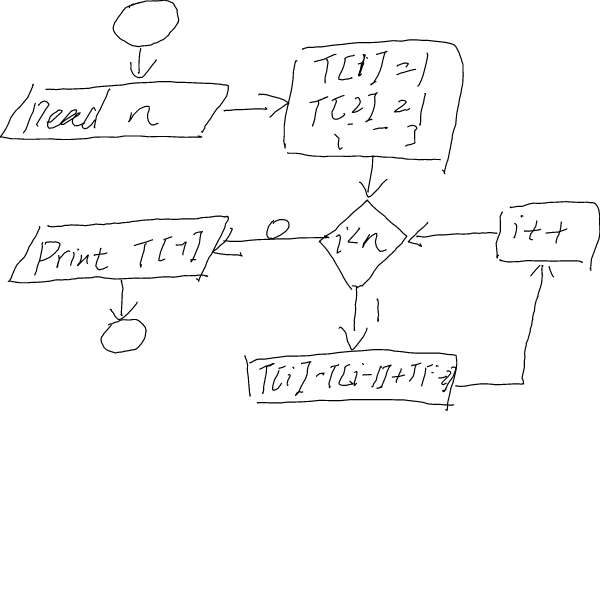 Read n
T[1]=1
T[2]=1
i = 3
i<n
0
1
Print T[n]
i++
T[i]=T[i-1]+T[i-2]